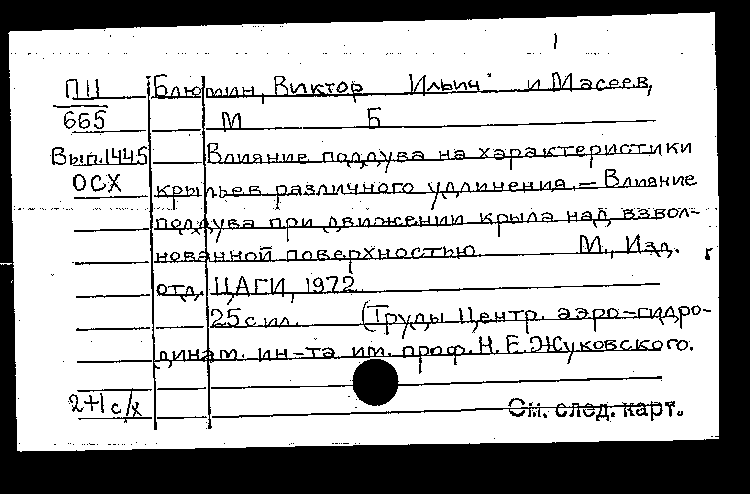 1
П11 Блюмин, Виктор Ильич и Масеев,
665 М Б
Вып.1445 Влияние поддува на характеристики
ОСХ крыльев различного удлинения. – Влияние
поддува при движении крыла над взвол-
нованной поверхностью М., Изд.
отд. ЦАГИ, 1972
25 с ил. (Труды Центр. аэро-гидро-
динам. ин-та им. проф. Н. Е. Жуковского.
2+1 с/х См. след. карт.